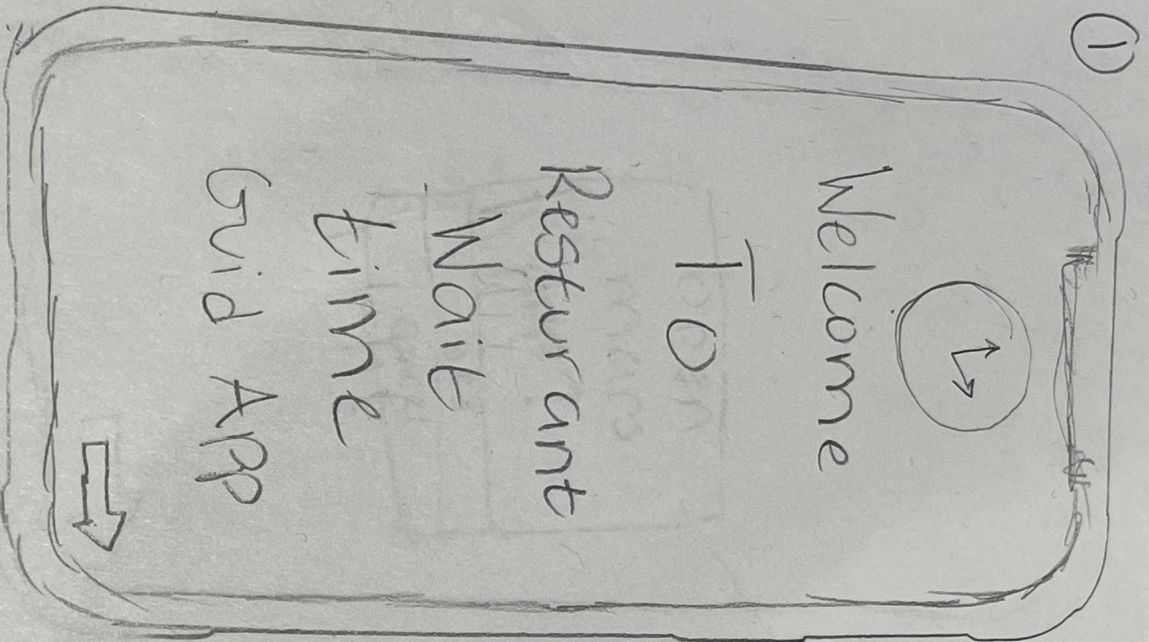 1
Welcome
To
Resturant
Wait
time
Guid App